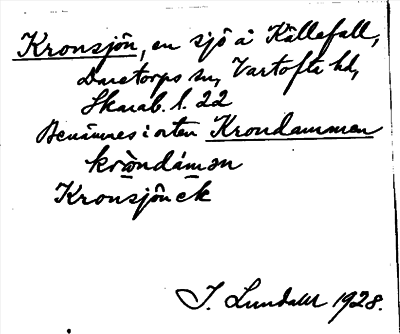 Kronsjön, en sjö å Källefall,
Daretorps sn, Vartofta hd,
Skarab. l. 22
Benämnes i orten Krondammen
kròndámən
Kronsjön ek
J. Lundahl 1928.